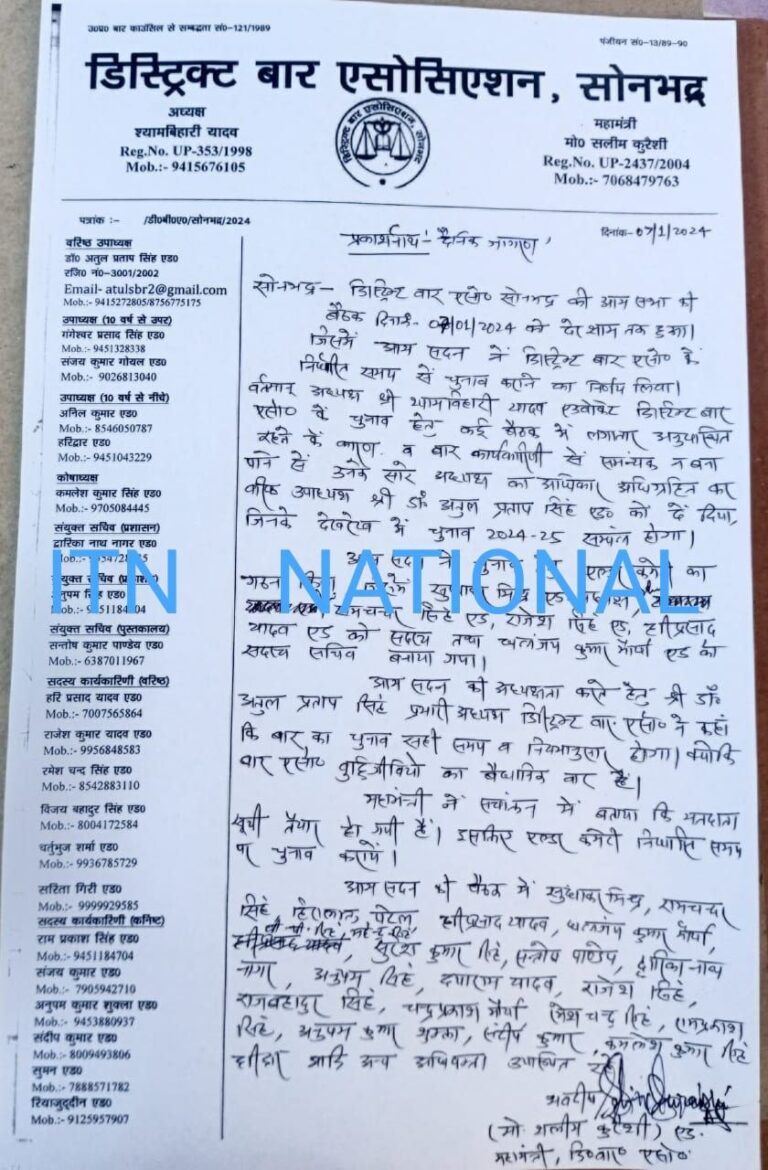 उ०प्र० बार काउंसिल से सम्बद्धता सं०-121/1989
पंजीयन सं०-13/89-90
डिस्ट्रिक्ट बार एसोसिएशन, सोनभद्र
अध्यक्ष
श्यामबिहारी यादव
Reg.No. UP-353/1998
Mob.:- 9415676105
डिस्ट्रिक्ट बार एसोसिएशन, सोनभद्र
महामंत्री
मो० सलीम कुरैशी
Reg.No. UP-2437/2004
Mob.:- 7068479763
पत्रांक :- /डी०बी०ए०/सोनभद्र/2024
दिनांक- 07/1/2024
वरिष्ठ उपाध्यक्ष
डॉ० अतुल प्रताप सिंह एड०
रजि० नं०-3001/2002
Email- atulsbr2@gmail.com
Mob.:- 9415272805/8756775175
उपाध्यक्ष (10 वर्ष से उपर)
गंगेश्वर प्रसाद सिंह एड०
Mob.:- 9451328338
संजय कुमार गोयल एड०
Mob.:- 9026813040
उपाध्यक्ष (10 वर्ष से नीचे)
अनिल कुमार एड०
Mob.:- 8546050787
हरिद्वार एड०
Mob.:- 9451043229
कोषाध्यक्ष
कमलेश कुमार सिंह एड०
Mob.:- 9705084445
संयुक्त सचिव (प्रशासन)
द्वारिका नाथ नागर एड०
संयुक्त सचिव
अनुपम सिंह एड०
संयुक्त सचिव (पुस्तकालय)
सन्तोष कुमार पाण्डेय एड०
Mob.:- 6387011967
सदस्य कार्यकारिणी (वरिष्ठ)
हरि प्रसाद यादव एड०
Mob.:- 7007565864
राजेश कुमार यादव एड०
Mob.:- 9956848583
रमेश चन्द सिंह एड०
Mob.:- 8542883110
विजय बहादुर सिंह एड०
Mob.:- 8004172584
चर्तुभुज शर्मा एड०
Mob.:- 9936785729
सरिता गिरी एड०
Mob.:- 9999929585
सदस्य कार्यकारिणी (कनिष्ट)
राम प्रकाश सिंह एड०
Mob.:- 9451184704
संजय कुमार एड०
Mob.:- 7905942710
अनुपम कुमार शुक्ला एड०
Mob.:- 9453880937
संदीप कुमार एड०
Mob.:- 8009493806
सुमन एड०
Mob.:- 7888571782
रियाजुद्दीन एड०
Mob.:- 9125957907
प्रकाशनार्थ - दैनिक जागरण
सोनभद्र- डिस्ट्रिक्ट बार एसो० सोनभद्र की आम सभा की
बैठक दिनांक- 07/01/2024 को देर शाम तक हुआ।
जिसमें आम सदन ने डिस्ट्रिक्ट बार एसो० के
निर्धारित समय से चुनाव कराने का निर्णय लिया।
वर्तमान अध्यक्ष श्री श्यामबिहारी यादव एडवोकेट डिस्ट्रिक्ट बार
एसो० के चुनाव हेतु कई बैठक में लगातार अनुपस्थित
रहने के कारण व बार कार्यकारिणी से समन्यक न बना
पाने से उनके सारे अध्यक्ष का अधिकार अधिग्रहित कर
वरिष्ठ उपाध्यक्ष श्री डॉ० अतुल प्रताप सिंह एड० को दे दिया,
जिनके देखरेख में चुनाव 2024-25 सम्पन्न होगा।
आम सदन ने चुनाव का
गठन किया मिश्र एड
रामचन्दर सिंह एड, राजेश सिंह एड, हरीप्रसाद
यादव एड को सदस्य तथा धनंजय कुमार मौर्या एड को
सदस्य सचिव बनाया गया।
आम सदन की अध्यक्षता करते हेतु श्री डॉ०
अतुल प्रताप सिंह प्रभारी अध्यक्ष डिस्ट्रिक्ट बार एसो० ने कहा
कि बार का चुनाव सही समय व नियमानुसार होगा। क्योंकि
बार एसो० बुद्धिजीवियो का बैधानिक बार है।
महामंत्री ने संचालन में बताया कि मतदाता
सूची तैयार हो गयी है। इसलिए एल्डर कमेटी निर्धारित समय
पर चुनाव करायें।
आम सदन की बैठक में सुधाकर मिश्र, रामचन्दर
सिंह, हीरालाल पटेल हरीप्रसाद यादव, धनंजय कुमार मौर्या,
सुरेश कुमार सिंह, सन्तोष पाण्डेय, द्वारिका नाथ
नागर, अनुपम सिंह, दयाराम यादव, राजेश सिंह,
राजबहादुर सिंह, चन्द्र प्रकाश मौर्या रमेश चन्द्र सिंह, रामप्रकाश
सिंह, अनुपम कुमार शुक्ला, संदीप कुमार, कमलेश कुमार सिंह
आदि अन्य अधिवक्ता उपस्थित रहे।
भवदीय
(मो० सलीम कुरैशी) एड.
महामंत्री, डि० बार० एसो०
ITN NATIONAL